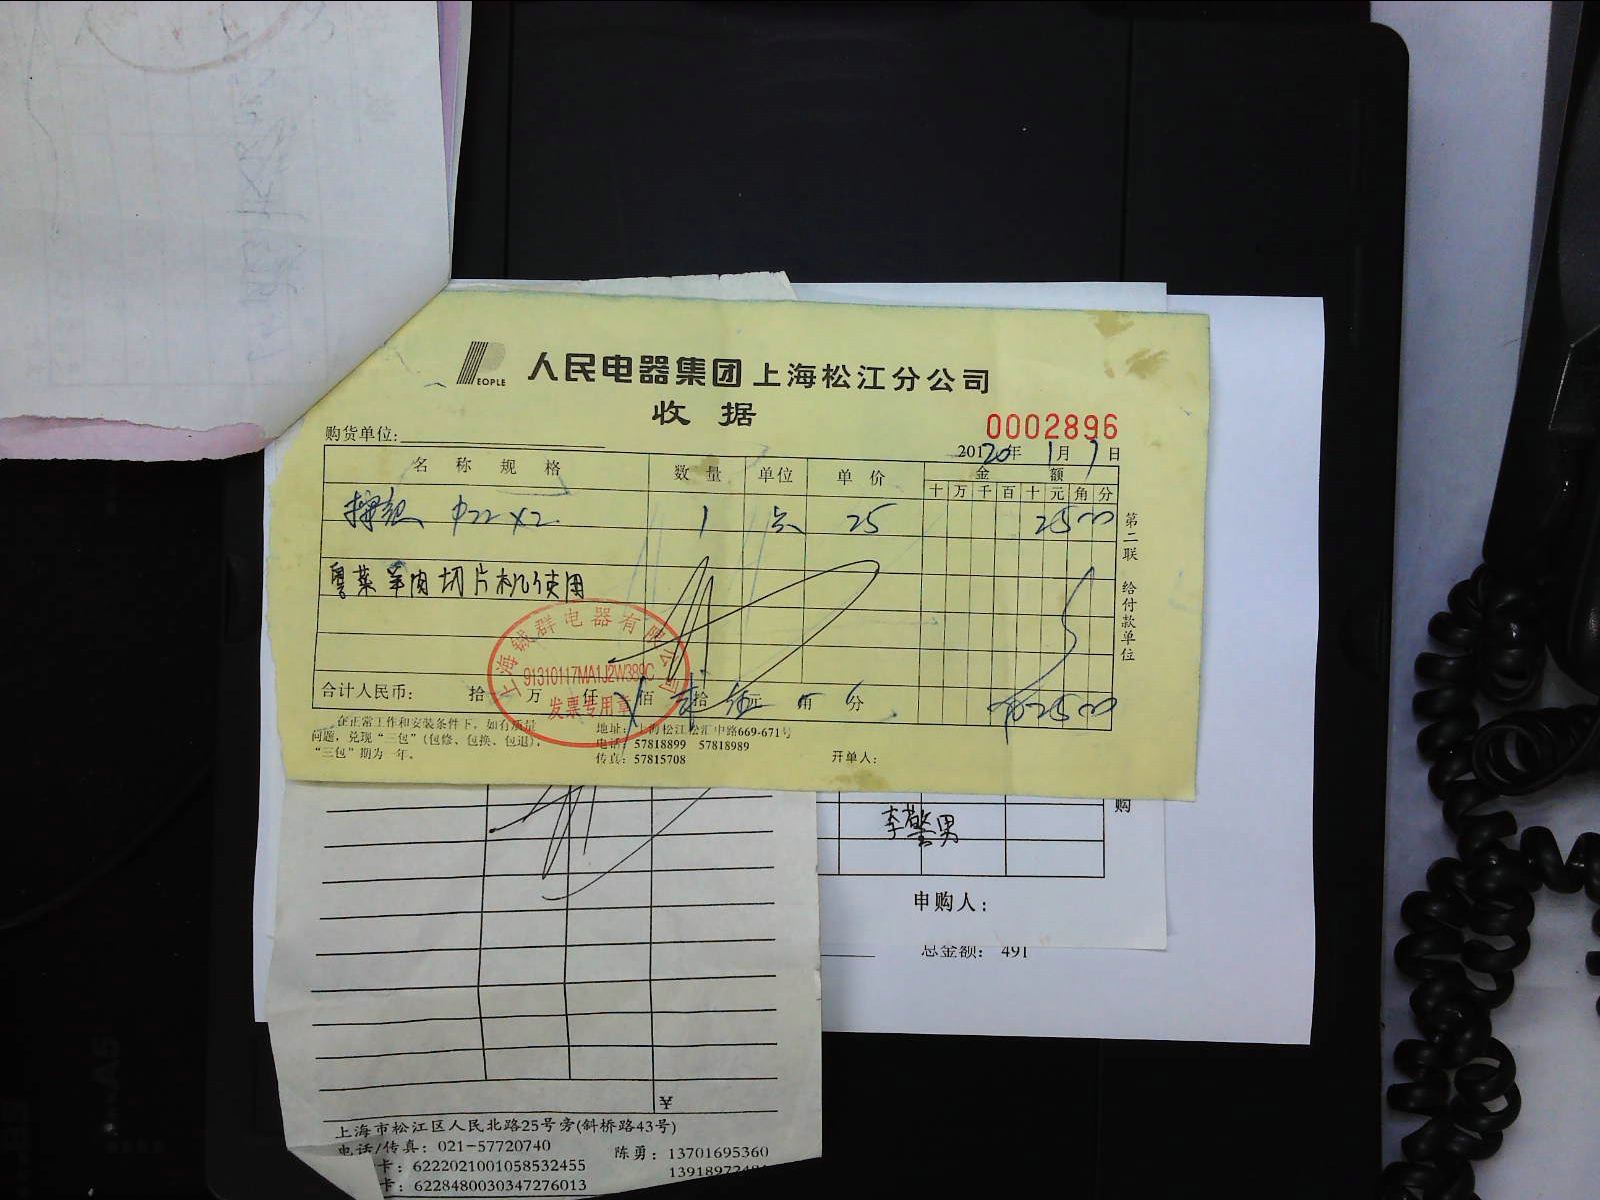 PEOPLE 人民电器集团 上海松江分公司
收据
0002896
购货单位:
20120年 1月 7日
名称规格 数量 单位 单价 金额
十 万 千 百 十 元 角 分
Φ22×2 1 25 2500
粤菜羊肉切片机使用
第二联 给付款单位
上海 群电器有限公司
91310117MA1J2W389C
发票专用章
合计人民币: 拾 万 仟 佰 拾 伍元 角 分 2500
在正常工作和安装条件下,如有质量
问题,兑现“三包”(包修、包换、包退),
“三包”期为一年。
地址:上海松江松汇中路669-671号
电话:57818899 57818989
传真:57815708
开单人:
购
李擎男
申购人:
总金额: 491
上海市松江区人民北路25号旁(斜桥路43号)
电话/传真:021-57720740 陈勇:13701695360
卡:6222021001058532455
卡:6228480030347276013